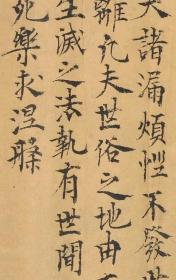 諸漏煩惱不發世
離凡夫世俗之地由
生滅之法執有世間
死樂求涅槃